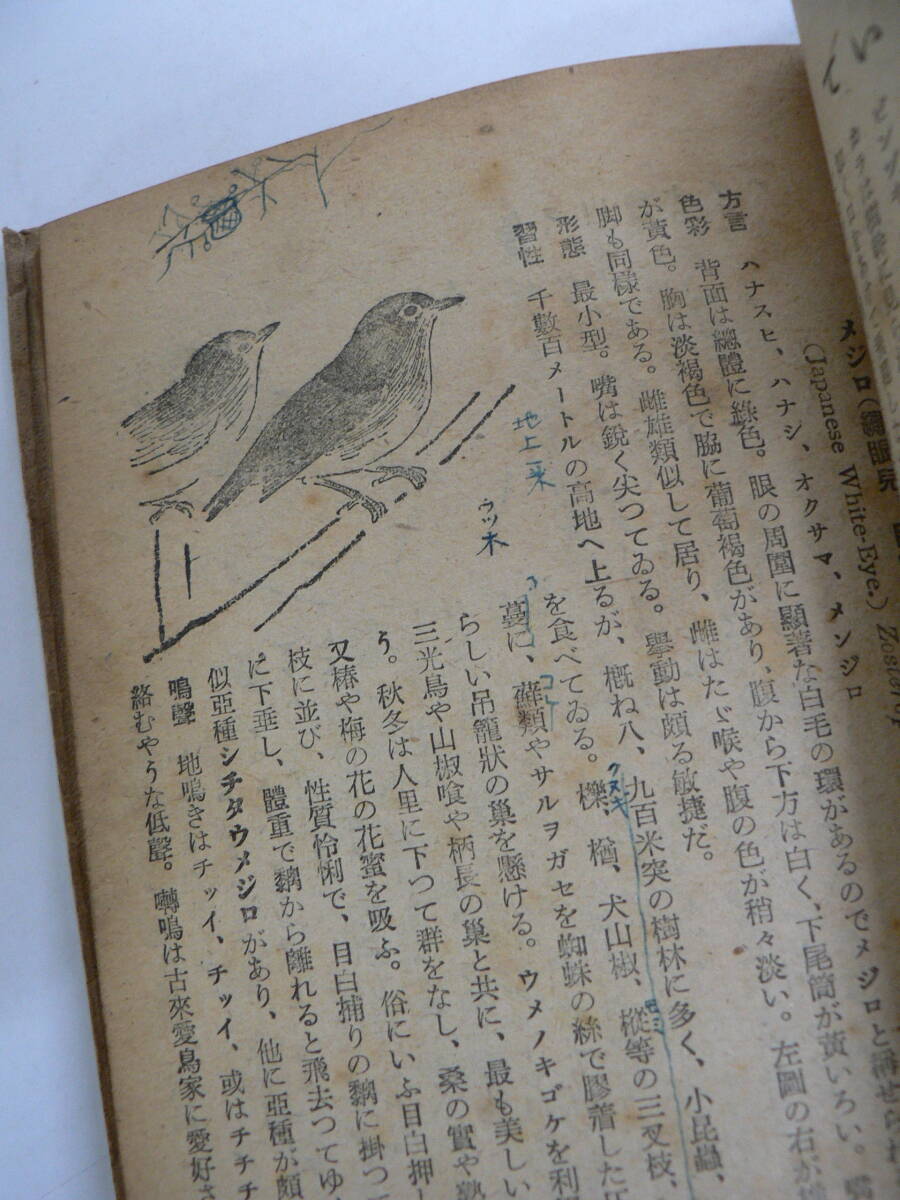 メジロ(繡眼兒
(Japanese White-Eye.)
方言 ハナスヒ、ハナシ、オクサマ、メンジロ
色彩 背面は總體に綠色。眼の周圍に顯著な白毛の環があるのでメジロと稱せられ
が黃色。胸は淡褐色で脇に葡萄褐色があり、腹から下方は白く、下尾筒が黃いろい。
脚も同樣である。雌雄類似して居り、雌はたゞ喉や腹の色が稍々淡い。左圖の右が
形態 最小型。嘴は銳く尖つてゐる。擧動は頗る敏捷だ。
習性 千數百メートルの高地へ上るが、槪ね八、九百米突の樹林に多く、小昆蟲、
を食べてゐる。櫟、楢、犬山椒、樅等の三叉枝、
蔓に、蘚類やサルヲガセを蜘蛛の絲で膠着した
らしい吊籠狀の巢を懸ける。ウメノキゴケを利
三光鳥や山椒喰や柄長の巢と共に、最も美しい
う。秋冬は人里に下つて群をなし、桑の實や熟
又椿や梅の花の花蜜を吸ふ。俗にいふ目白押し
枝に並び、性質怜悧で、目白捕りの黐に掛つ
に下垂し、體重で黐から離れると飛去つてゆ
似亞種シチタウメジロがあり、他に亞種が頗
鳴聲 地鳴きはチッイ、チッイ、或はチチ
絡むやうな低聲。囀鳴は古來愛鳥家に愛好さ
地上一米
ウツ木
コケ
クヌギ
モミ